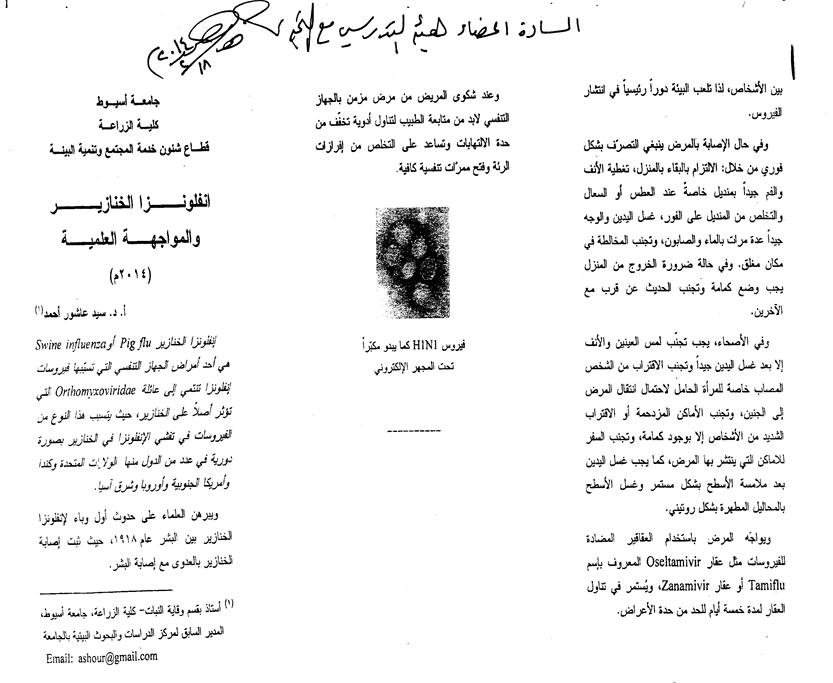 السادة اعضاء هيئة التدريس مع
٢٠١٤
٦/١٨
جامعة أسيوط
كلية الزراعة
قطاع شئون خدمة المجتمع وتنمية البيئة
انفلونـــزا الخنازيـــر
والمواجهـــة العلميـــة
(٢٠١٤م)
أ. د. سيد عاشور أحمد(١)
إنفلونزا الخنازير Pig flu أوSwine influenza
هي أحد أمراض الجهاز التنفسي التي تسبّبها فيروسات
إنفلونزا تنتمي إلى عائلة Orthomyxoviridae التي
تؤثر أصلاً على الخنازير، حيث يتسبب هذا النوع من
الفيروسات في تفشي الإنفلونزا في الخنازير بصورة
دورية في عدد من الدول منها الولايات المتحدة وكندا
وأمريكا الجنوبية وأوروبا وشرق آسيا.
ويبرهن العلماء على حدوث أول وباء لإنفلونزا
الخنازير بين البشر عام ١٩١٨، حيث ثبت إصابة
الخنازير بالعدوى مع إصابة البشر.
(١) أستاذ بقسم وقاية النبات- كلية الزراعة، جامعة أسيوط،
المدير السابق لمركز الدراسات والبحوث البيئية بالجامعة
Email: ashour@gmail.com
وعند شكوى المريض من مرض مزمن بالجهاز
التنفسي لابد من متابعة الطبيب لتناول أدوية تخفّف من
حدة الالتهابات وتساعد على التخلص من إفرازات
الرئة وفتح ممرّات تنفسية كافية.
فيروس H1N1 كما يبدو مكبّراً
تحت المجهر الإلكتروني
----------
بين الأشخاص، لذا تلعب البيئة دوراً رئيسياً في انتشار
الفيروس.
وفي حال الإصابة بالمرض ينبغي التصرّف بشكل
فوري من خلال: الالتزام بالبقاء بالمنزل، تغطية الأنف
والفم جيداً بمنديل خاصةً عند العطس أو السعال
والتخلص من المنديل على الفور، غسل اليدين والوجه
جيداً عدة مرات بالماء والصابون، وتجنب المخالطة في
مكان مغلق. وفي حالة ضرورة الخروج من المنزل
يجب وضع كمامة وتجنب الحديث عن قرب مع
الآخرين.
وفي الأصحاء، يجب تجنّب لمس العينين والأنف
إلا بعد غسل اليدين جيداً وتجنب الاقتراب من الشخص
المصاب خاصة للمرأة الحامل لاحتمال انتقال المرض
إلى الجنين، وتجنب الأماكن المزدحمة أو الاقتراب
الشديد من الأشخاص إلا بوجود كمامة، وتجنب السفر
للاماكن التي ينتشر بها المرض، كما يجب غسل اليدين
بعد ملامسة الأسطح بشكل مستمر وغسل الأسطح
بالمحاليل المطهرة بشكل روتيني.
ويواجّه المرض باستخدام العقاقير المضادة
للفيروسات مثل عقار Oseltamivir المعروف بإسم
Tamiflu أو عقار Zanamivir، ويُستمر في تناول
العقار لمدة خمسة أيام للحد من حدة الأعراض.